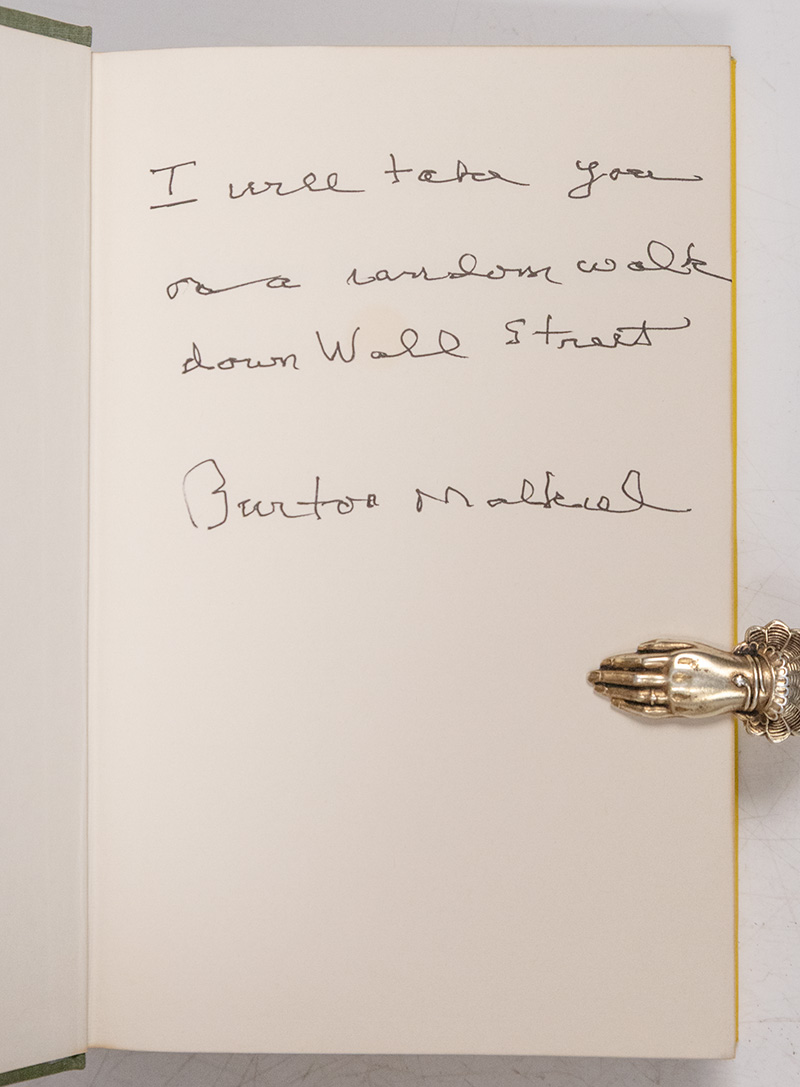 I will take you
on a random walk
down Wall Street
Burton Malkiel